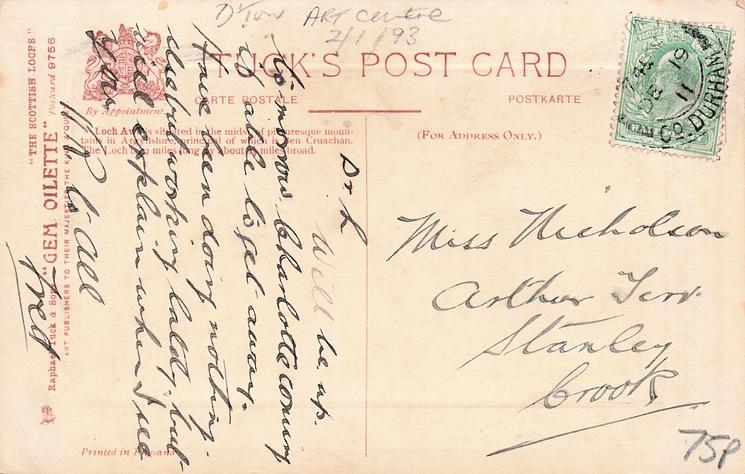 D'Ton ART Centre
2/1/93
TUCK'S POST CARD
CARTE POSTALE
POSTKARTE
By Appointment.
(FOR ADDRESS ONLY.)
Loch Awe is situated in the midst of picturesque moun-
tains in Argyllshire, principal of which is Ben Cruachan.
The Loch is miles long by about miles broad.
"THE SCOTTISH LOCHS."
"GEM OILETTE" Postcard 9756
Raphael Tuck & Sons'
ART PUBLISHERS TO THEIR MAJESTIES THE KING
Printed in
Dr L
Will be up
to-morrow Charlotte coming
is able to get away.
Have been doing nothing
been working lately, but
will explain when I see
you
all
Fred
Miss Nicholson
Arthur Terr.
Stanley
Crook
19
11
CO. DURHAM
75p